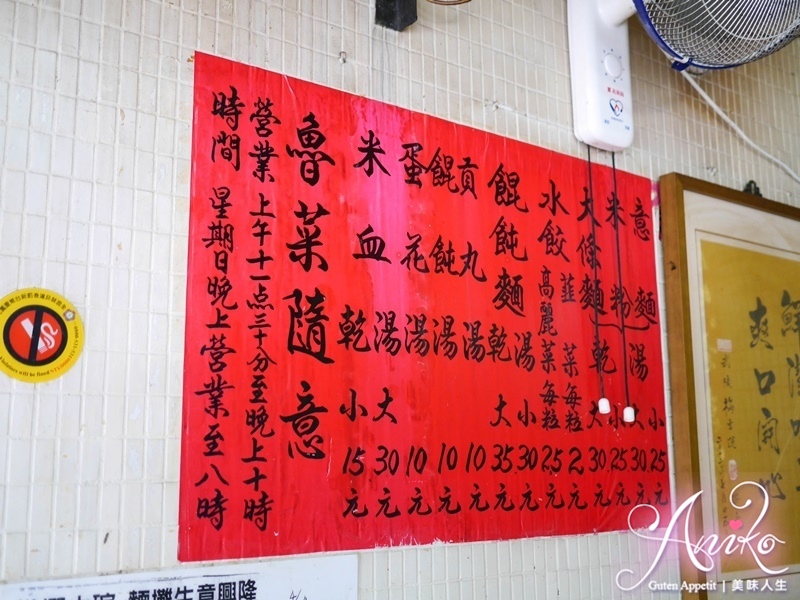 意麵 湯 小 25 元
米粉 大 30 元
大條麵 乾 小 25 元
大 30 元
水餃 韮菜每粒 2 元
高麗菜每粒 2.5 元
餛飩麵 湯 小 30 元
乾 大 35 元
貢丸湯 10 元
餛飩湯 10 元
蛋花湯 10 元
米血 湯 大 30 元
乾 小 15 元
魯菜隨意
營業時間 上午十一点三十分至晚上十時
星期日晚上營業至八時
爽口開
麵攤生意興隆
Aniko
Guten Appetit | 美味人生